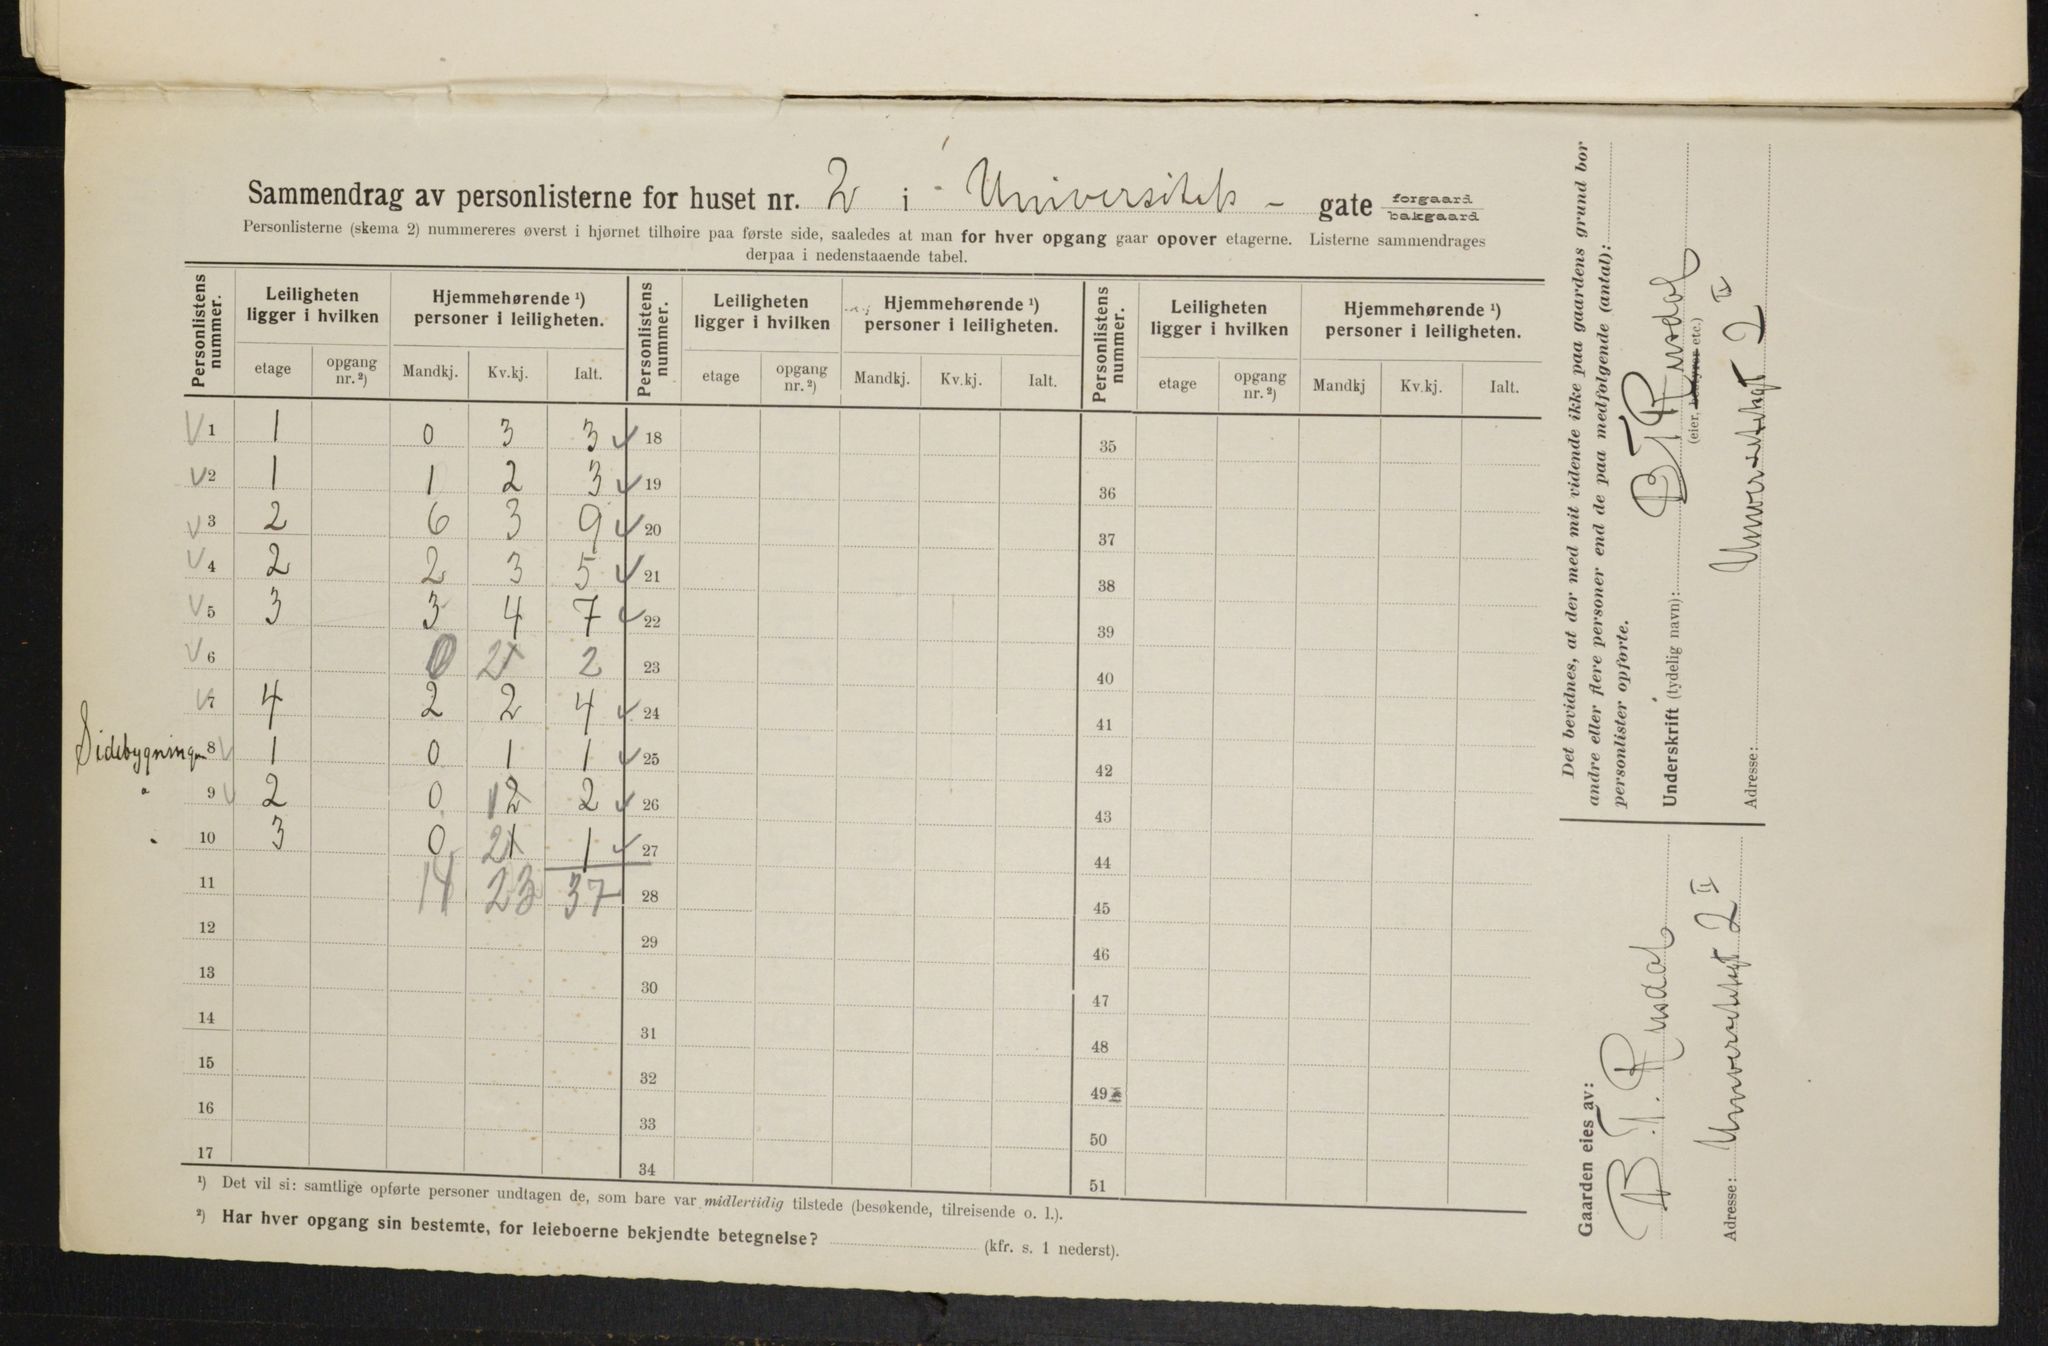 Sammendrag av personlisterne for huset nr. 2 i Universitets - gate forgaard bakgaard
Personlisterne (skema 2) nummereres øverst i hjørnet tilhøire paa første side, saaledes at man for hver opgang gaar opover etagerne. Listerne sammendrages
derpaa i nedenstaaende tabel.
Personlistens nummer. Leiligheten ligger i hvilken Hjemmehørende ¹) personer i leiligheten. Personlistens nummer. Leiligheten ligger i hvilken Hjemmehørende ¹) personer i leiligheten. Personlistens nummer. Leiligheten ligger i hvilken Hjemmehørende ¹) personer i leiligheten.
etage opgang nr. ²) Mandkj. Kv.kj. Ialt. etage opgang nr. ²) Mandkj. Kv.kj. Ialt. etage opgang nr. ²) Mandkj Kv.kj. Ialt.
V 1 1 0 3 3 ✓ 18 35
V 2 1 1 2 3 ✓ 19 36
V 3 2 6 3 9 ✓ 20 37
V 4 2 2 3 5 ✓ 21 38
V 5 3 3 4 7 ✓ 22 39
V 6 0 2 2 23 40
V 7 4 2 2 4 ✓ 24 41
Sidebygningen 8 V 1 0 1 1 ✓ 25 42
" 9 V 2 0 12 2 ✓ 26 43
" 10 3 0 21 1 ✓ 27 44
11 14 23 37 28 45
12 29 46
13 30 47
14 31 48
15 32 49
16 33 50
17 34 51
¹) Det vil si: samtlige opførte personer undtagen de, som bare var midlertidig tilstede (besøkende, tilreisende o. l.).
²) Har hver opgang sin bestemte, for leieboerne bekjendte betegnelse? (kfr. s. 1 nederst).
Det bevidnes, at der med mit vidende ikke paa gaardens grund bor
andre eller flere personer end de paa medfølgende (antal):
personlister opførte.
Underskrift (tydelig navn): B T Rusdal
(eier, bestyrer etc.)
Adresse: Universitetsgt 2 II
Gaarden eies av:
B. T. Rusdal
Adresse: Universitetsgt 2 II